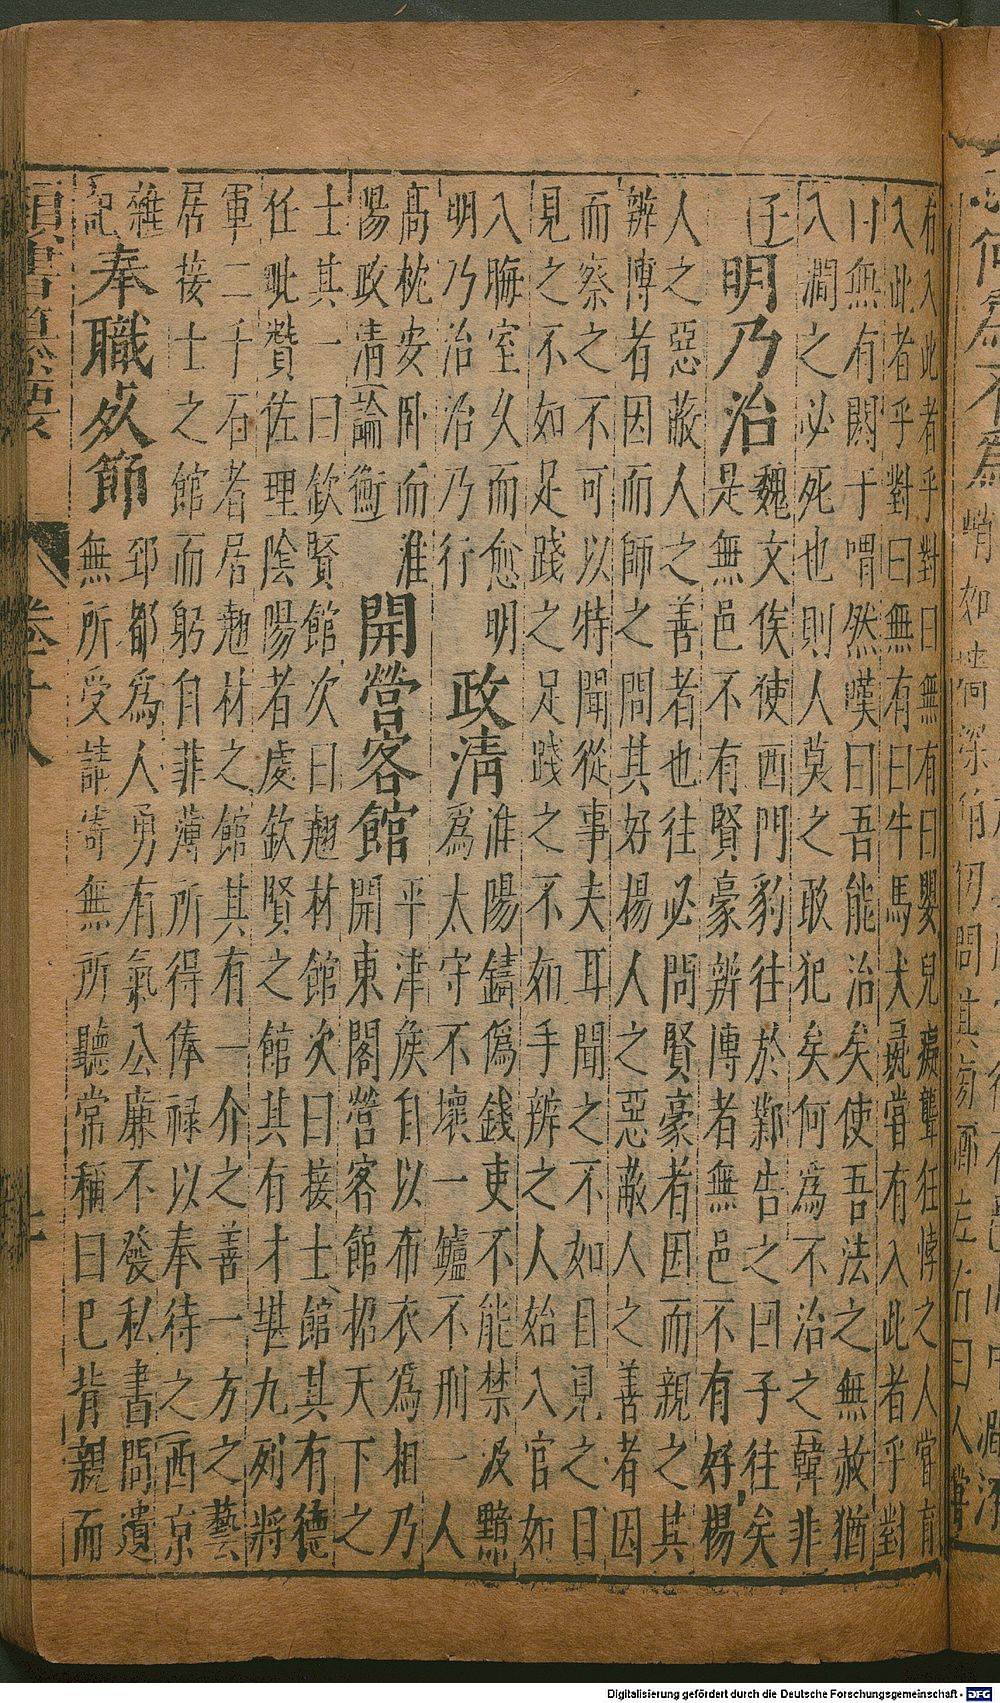 有入此者乎對曰無有曰嬰兒癡聾狂悖之人甞有
入此者乎對曰無有曰牛馬犬彘甞有入此者乎對
曰無有閼于喟然嘆曰吾能治矣使吾法之無赦猶
入澗之必死也則人莫之敢犯矣何為不治之韓非
子
明乃治
魏文侯使西門豹往於鄴告之曰子往矣
是無邑不有賢豪辨博者無邑不有好揚
人之惡蔽人之善者也往必問賢豪者因而親之其
辨博者因而師之問其好揚人之惡蔽人之善者因
而察之不可以特聞從事夫耳聞之不如目見之目
見之不如足踐之足踐之不如手辨之人始入官如
入晦室久而愈明
明乃治治乃行
政清
淮陽鑄偽錢吏不能禁汲黯
為太守不壞一鑪不刑一人
高枕安卧而淮
陽政清論衡
開營客館
平津侯自以布衣為相乃
開東閣營客館招天下之
士其一曰欽賢館次曰翹材館次曰接士館其有德
任毗贊佐理陰陽者處欽賢之館其有才堪九列將
軍二千石者居翹材之館其有一介之善一方之藝
居接士之館而躬自非薄所得俸祿以奉待之西京
雜
記
奉職死節
郅都為人勇有氣公廉不發私書問遺
無所受請寄無所聽常稱曰已背親而
卷十八
Digitalisierung gefördert durch die Deutsche Forschungsgemeinschaft - DFG